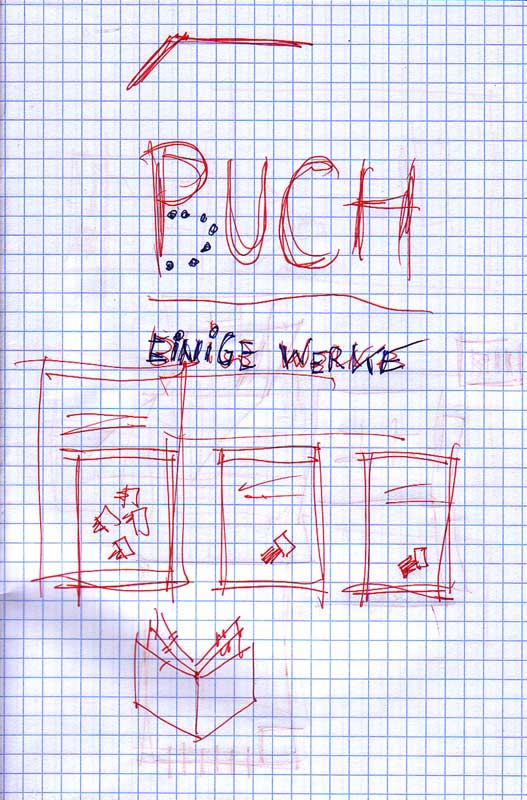 PUCH
EiNiGE WERKE